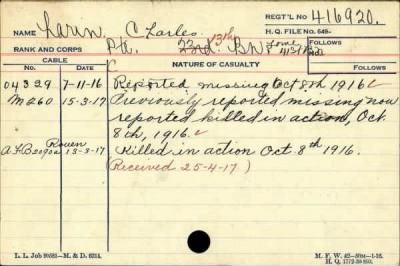 REGT'L NO 416920.
NAME Larin, Charles.
H. Q. FILE NO. 649-
RANK AND CORPS Pte. 23rd. 13th BN
FOLLOWS
CABLE
NO. DATE NATURE OF CASUALTY FOLLOWS
04329 7-11-16 Reported missing Oct 8th 1916
M260 15-3-17 Previously reported missing now
reported killed in action, Oct
8th, 1916.
Rouen
13-3-17 Killed in action Oct. 8th 1916.
(Received 25-4-17.)
L. L. Job 90583—M. & D. 6234.
M. F. W. 42—50M—1-16.
H. Q. 1772-39-893.